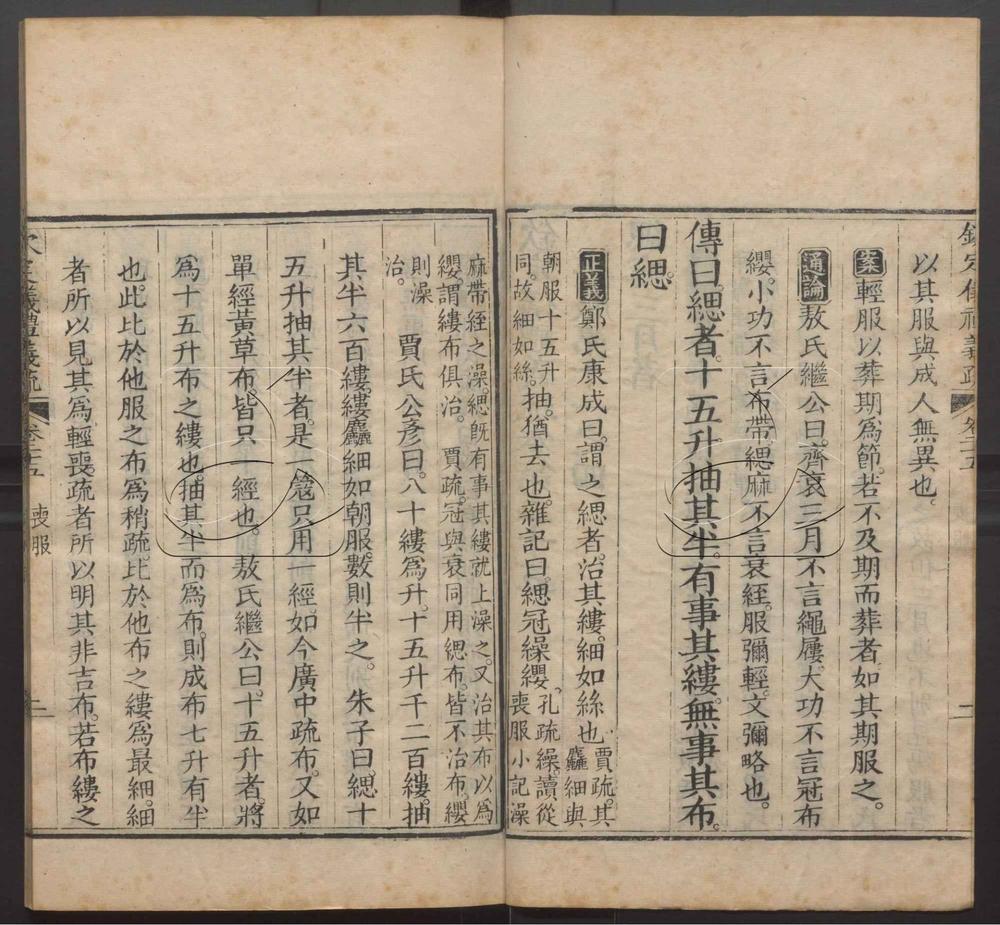 欽定儀禮義疏 卷二十五 二
以其服與成人無異也。
案輕服以葬期爲節。若不及期而葬者。如其期服之。
通論敖氏繼公曰。齊衰三月不言繩屨。大功不言冠布
纓。小功不言布帶。緦麻不言衰絰。服彌輕。文彌略也。
傳曰。緦者。十五升抽其半。有事其縷。無事其布。
曰緦。
正義鄭氏康成曰。謂之緦者。治其縷。細如絲也。
賈疏。其
麤細與
朝服十五升
同。故細如絲。
抽。猶去也。雜記曰。緦冠繰纓。
孔疏。繰。讀從
喪服小記澡
麻帶絰之澡。緦旣有事其縷。就上澡之。又治其布以爲
纓。謂縷布俱治。
賈疏。冠與衰同用緦布。皆不治布。纓
則澡
治。
賈氏公彥曰。八十縷爲升。十五升千二百縷。抽
其半六百縷。縷麤細如朝服。數則半之。
朱子曰。緦十
五升抽其半者。是一篾只用一經。如今廣中疏布。又如
單經黃草布。皆只一經也。
敖氏繼公曰。十五升者。將
爲十五升布之縷也。抽其半而爲布。則成布七升有半
也。此比於他服之布爲稍疏。比於他布之縷爲最細。細
者所以見其爲輕喪。疏者所以明其非吉布。若布縷之
欽定儀禮義疏 卷二十五 喪服 二